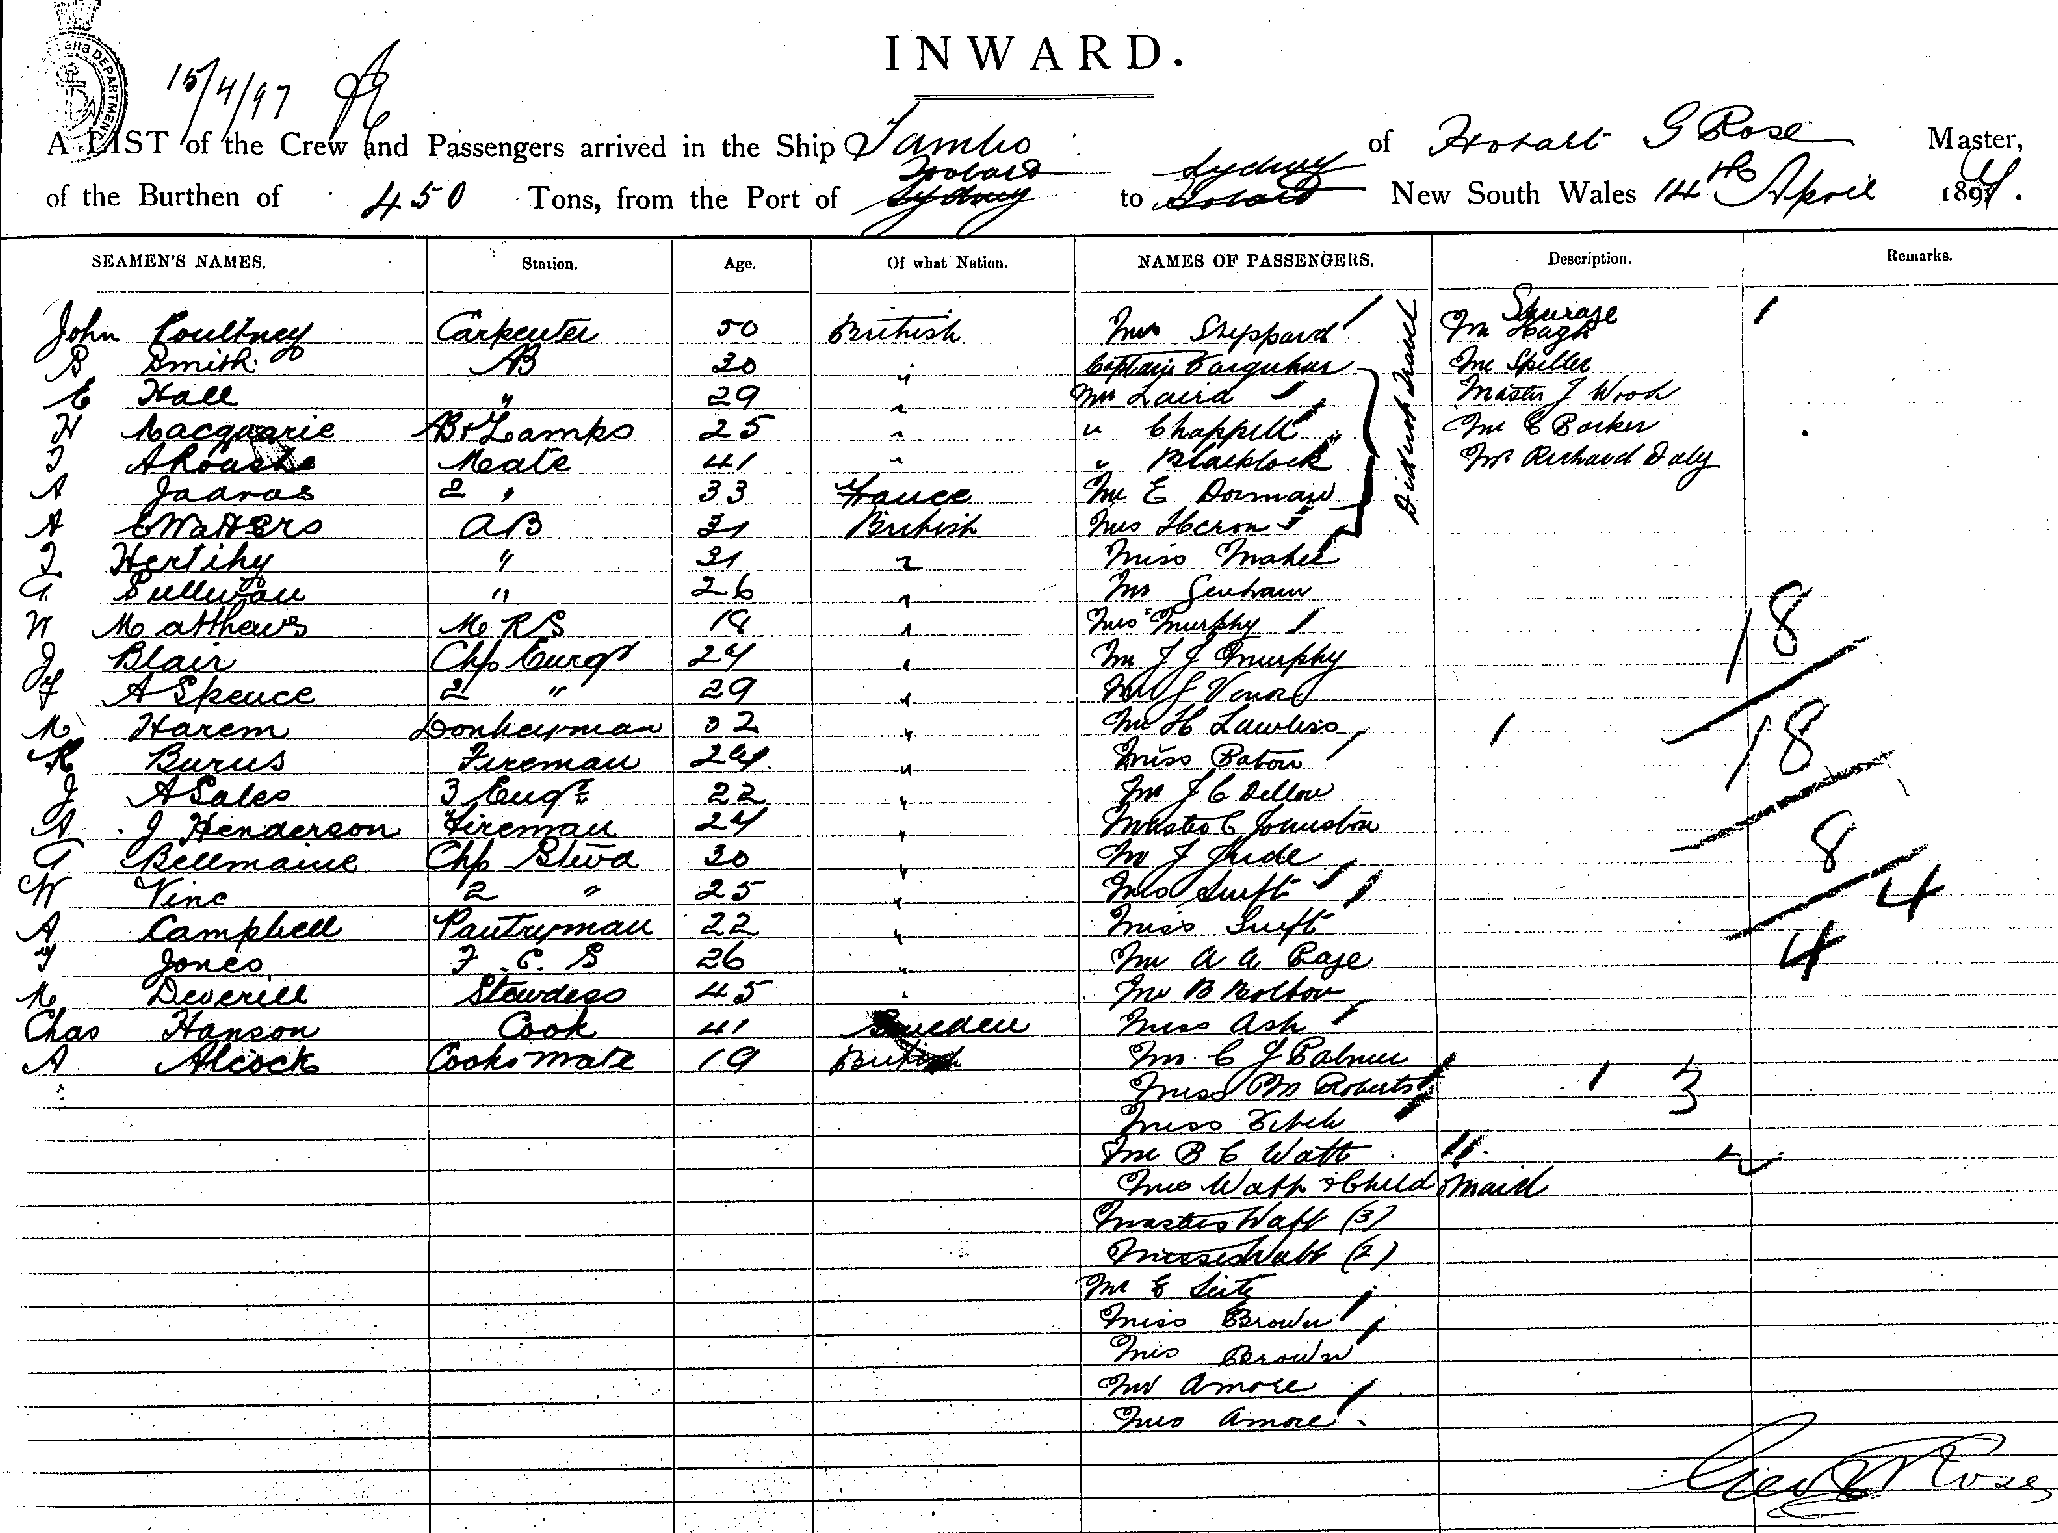 INWARD.
DEPARTMENT
15/4/97
A LIST of the Crew and Passengers arrived in the Ship Tambo of Hobart G Rose Master,
Hobart Sydney
of the Burthen of 450 Tons, from the Port of Sydney to Hobart New South Wales 14th April 1897.
SEAMEN'S NAMES. Station. Age. Of what Nation. NAMES OF PASSENGERS. Description. Remarks.
Steerage
John Coultney Carpenter 50 British Mrs Sheppard Mr
S Smith AB 30 " Captain Farquhar Mr Spiller
E Hall " 29 " Mr Laird Master J Wood
H Macquarie AB & Lamps 25 " " Chappell Mr E Barker
Mate 41 " " Blacklock Mr Richard Daly
A 2 " 33 France Mr E Dorman
Did not Travel
A E Watters AB 31 British Mrs Heron
T Hertihy " 31 " Miss Maher
Sullivan " 26 " Mr
W Matthews M R S 18 " Mrs Murphy
J Blair Chf Engr 24 " Mr J J Murphy
18
A Spence 2 " 29 " Mr
M Harem Donkeyman 32 " Mr H Lawless
18
Burns Fireman 24 " Miss Eaton
J A Sales 3 Engr 22 " Mr J C Dellow
A J Henderson Fireman 24 " Master C Johnston
8
Bellmaine Chf Stewd 30 " Mr J Jude
W Vine 2 " 25 " Mrs Swift
4
A Campbell Pantryman 22 " Miss Swift
4
T Jones F. C. S 26 " Mr A A Page
M Deverill Stewdess 45 " Mr B Bolton
Chas Hanson Cook 41 Sweden Miss Ash
A Alcock Cooks mate 19 British Mr C J Palmer
Miss M Roberts 3
Miss
Mr B C Watt
Mrs Watt & Child & Maid
Masters Watt (3)
Misses Watt (2)
Mr E Seitz
Miss Brown
Mrs Brown
Mr Amore
Mrs Amore
Geo Rose